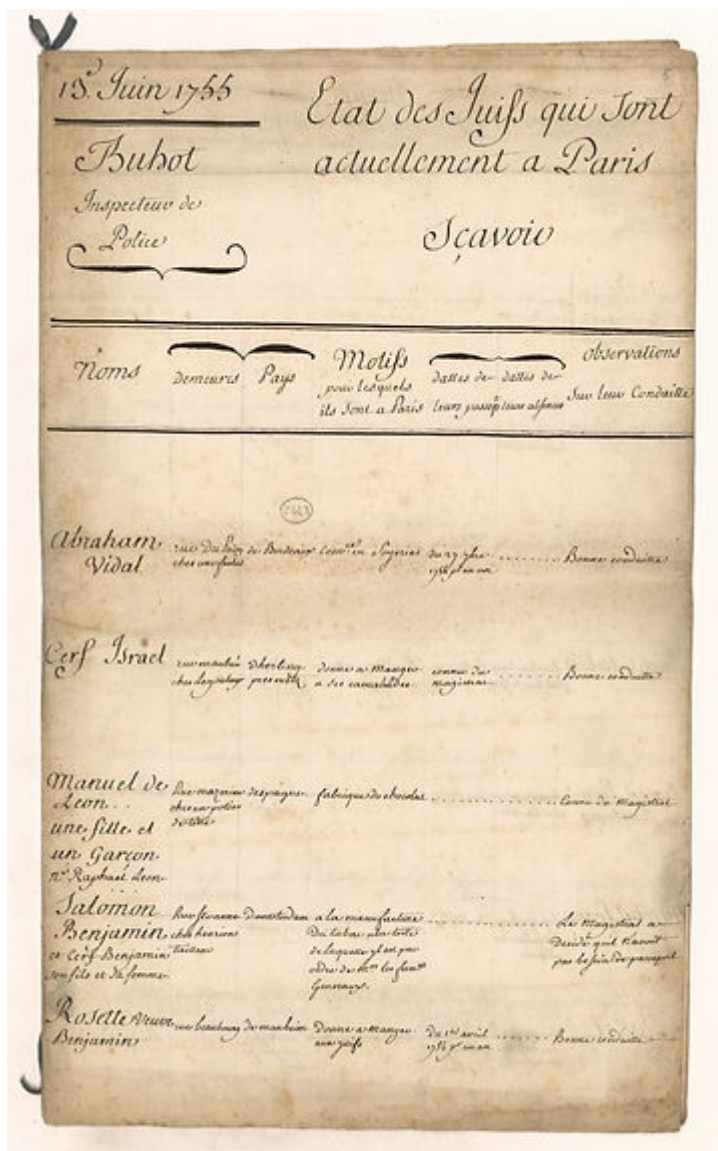 15. Juin 1755
Buhot
Inspecteur de
Police
Etat des Juifs qui sont
actuellement a Paris
Sçavoir
Noms
Demeures
Pays
Motifs
pour lesquels
ils sont a Paris
dattes de
leurs passep
dattes de
leurs absences
observations
Sur leur Conduitte
Abraham
Vidal
rue
de Bordeaux
Comm.ce en Soyeries
du 27
Bonne conduitte
Cerf Israel
rue maubué
donne a manger
a ses camarades
connu du
magistrat
Bonne conduitte
Manuel de
Leon
une fille et
un Garçon
né Raphael Leon
Rue mazarine
chez un potier
despagne
fabrique du chocolat
Connu du Magistrat
Salomon
Benjamin
et Cerf Benjamin
son fils et sa femme
tailleur
Damsterdam
a la manufacture
Du tabac
de laquelle il est par
ordre de
Generaux.
Le Magistrat a
Decidé quil n'avoit
pas besoin de passeport
Roselle Veuve
Benjamin
rue beaubourg
de manheim
Donne a manger
aux juifs
Du 1er avril
Bonne conduitte